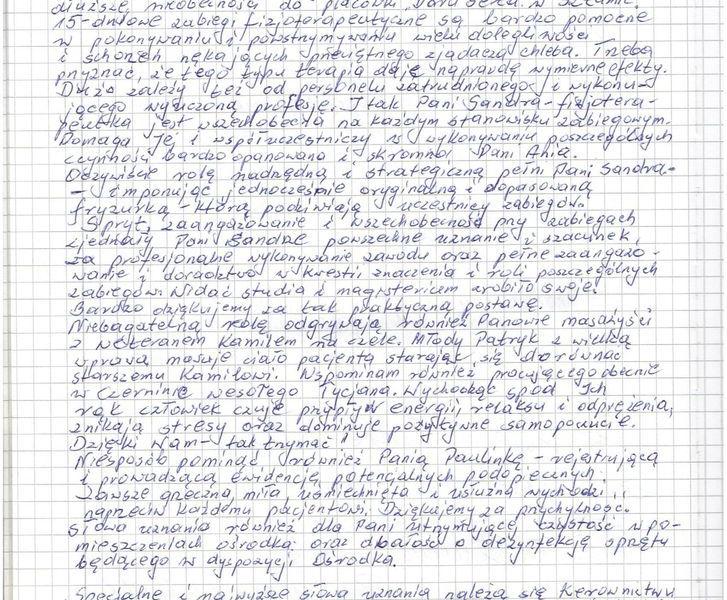 dłuższej nieobecności do placówki "Daru Serca" w Sztumie.
15-dniowe zabiegi fizjoterapeutyczne są bardzo pomocne
w pokonywaniu i powstrzymywaniu wielu dolegliwości
i schorzeń nękających przeciętnego zjadacza chleba. Trzeba
przyznać, że tego typu terapia daje naprawdę wymierne efekty.
Dużo zależy też od personelu zatrudnionego i wykonu-
jącego wyuczoną profesję. I tak Pani Sandra-fizjotera-
peutka jest wszechobecna na każdym stanowisku zabiegowym.
Pomaga Jej i współuczestniczy w wykonywaniu poszczególnych
czynności bardzo opanowana i skromna Pani Ania.
Oczywiście rolę nadrzędną i strategiczną pełni Pani Sandra-
- imponując jednocześnie oryginalną i dopasowaną
fryzurką - którą podziwiają uczestnicy zabiegów.
Spryt, zaangażowanie i wszechobecność przy zabiegach
zjednały Pani Sandrze powszechne uznanie i szacunek,
za profesjonalne wykonywanie zawodu oraz pełne zaangażo-
wanie i doradztwo w kwestii znaczenia i roli poszczególnych
zabiegów. Widać studia i magisterium zrobiło swoje.
Bardzo dziękujemy za tak praktyczną postawę.
Niebagatelną rolę odgrywają również Panowie masażyści
z weteranem Kamilem na czele. Młody Patryk z wielką
wprawą masuje ciało pacjenta starając się dorównać
starszemu Kamilowi. Wspominam również pracującego obecnie
w Czerninie wesołego Tycjana. Wychodząc spod Ich
rąk człowiek czuje przypływ energii, relaksu i odprężenia,
znikają stresy oraz dominuje pozytywne samopoczucie.
Dzięki Wam - tak trzymać!
Niesposób pominąć również Panią Paulinkę - rejestrującą
i prowadzącą ewidencję potencjalnych podopiecznych.
Zawsze grzeczna, miła, uśmiechnięta i usłużna wychodzi
naprzeciw każdemu pacjentowi. Dziękujemy za przychylność.
Słowa uznania również dla Pani utrzymującej czystość w po-
mieszczeniach ośrodka oraz dbałość o dezynfekcję sprzętu
będącego w dyspozycji Ośrodka.
Specjalne i najwyższe słowa uznania należą się Kierownictwu